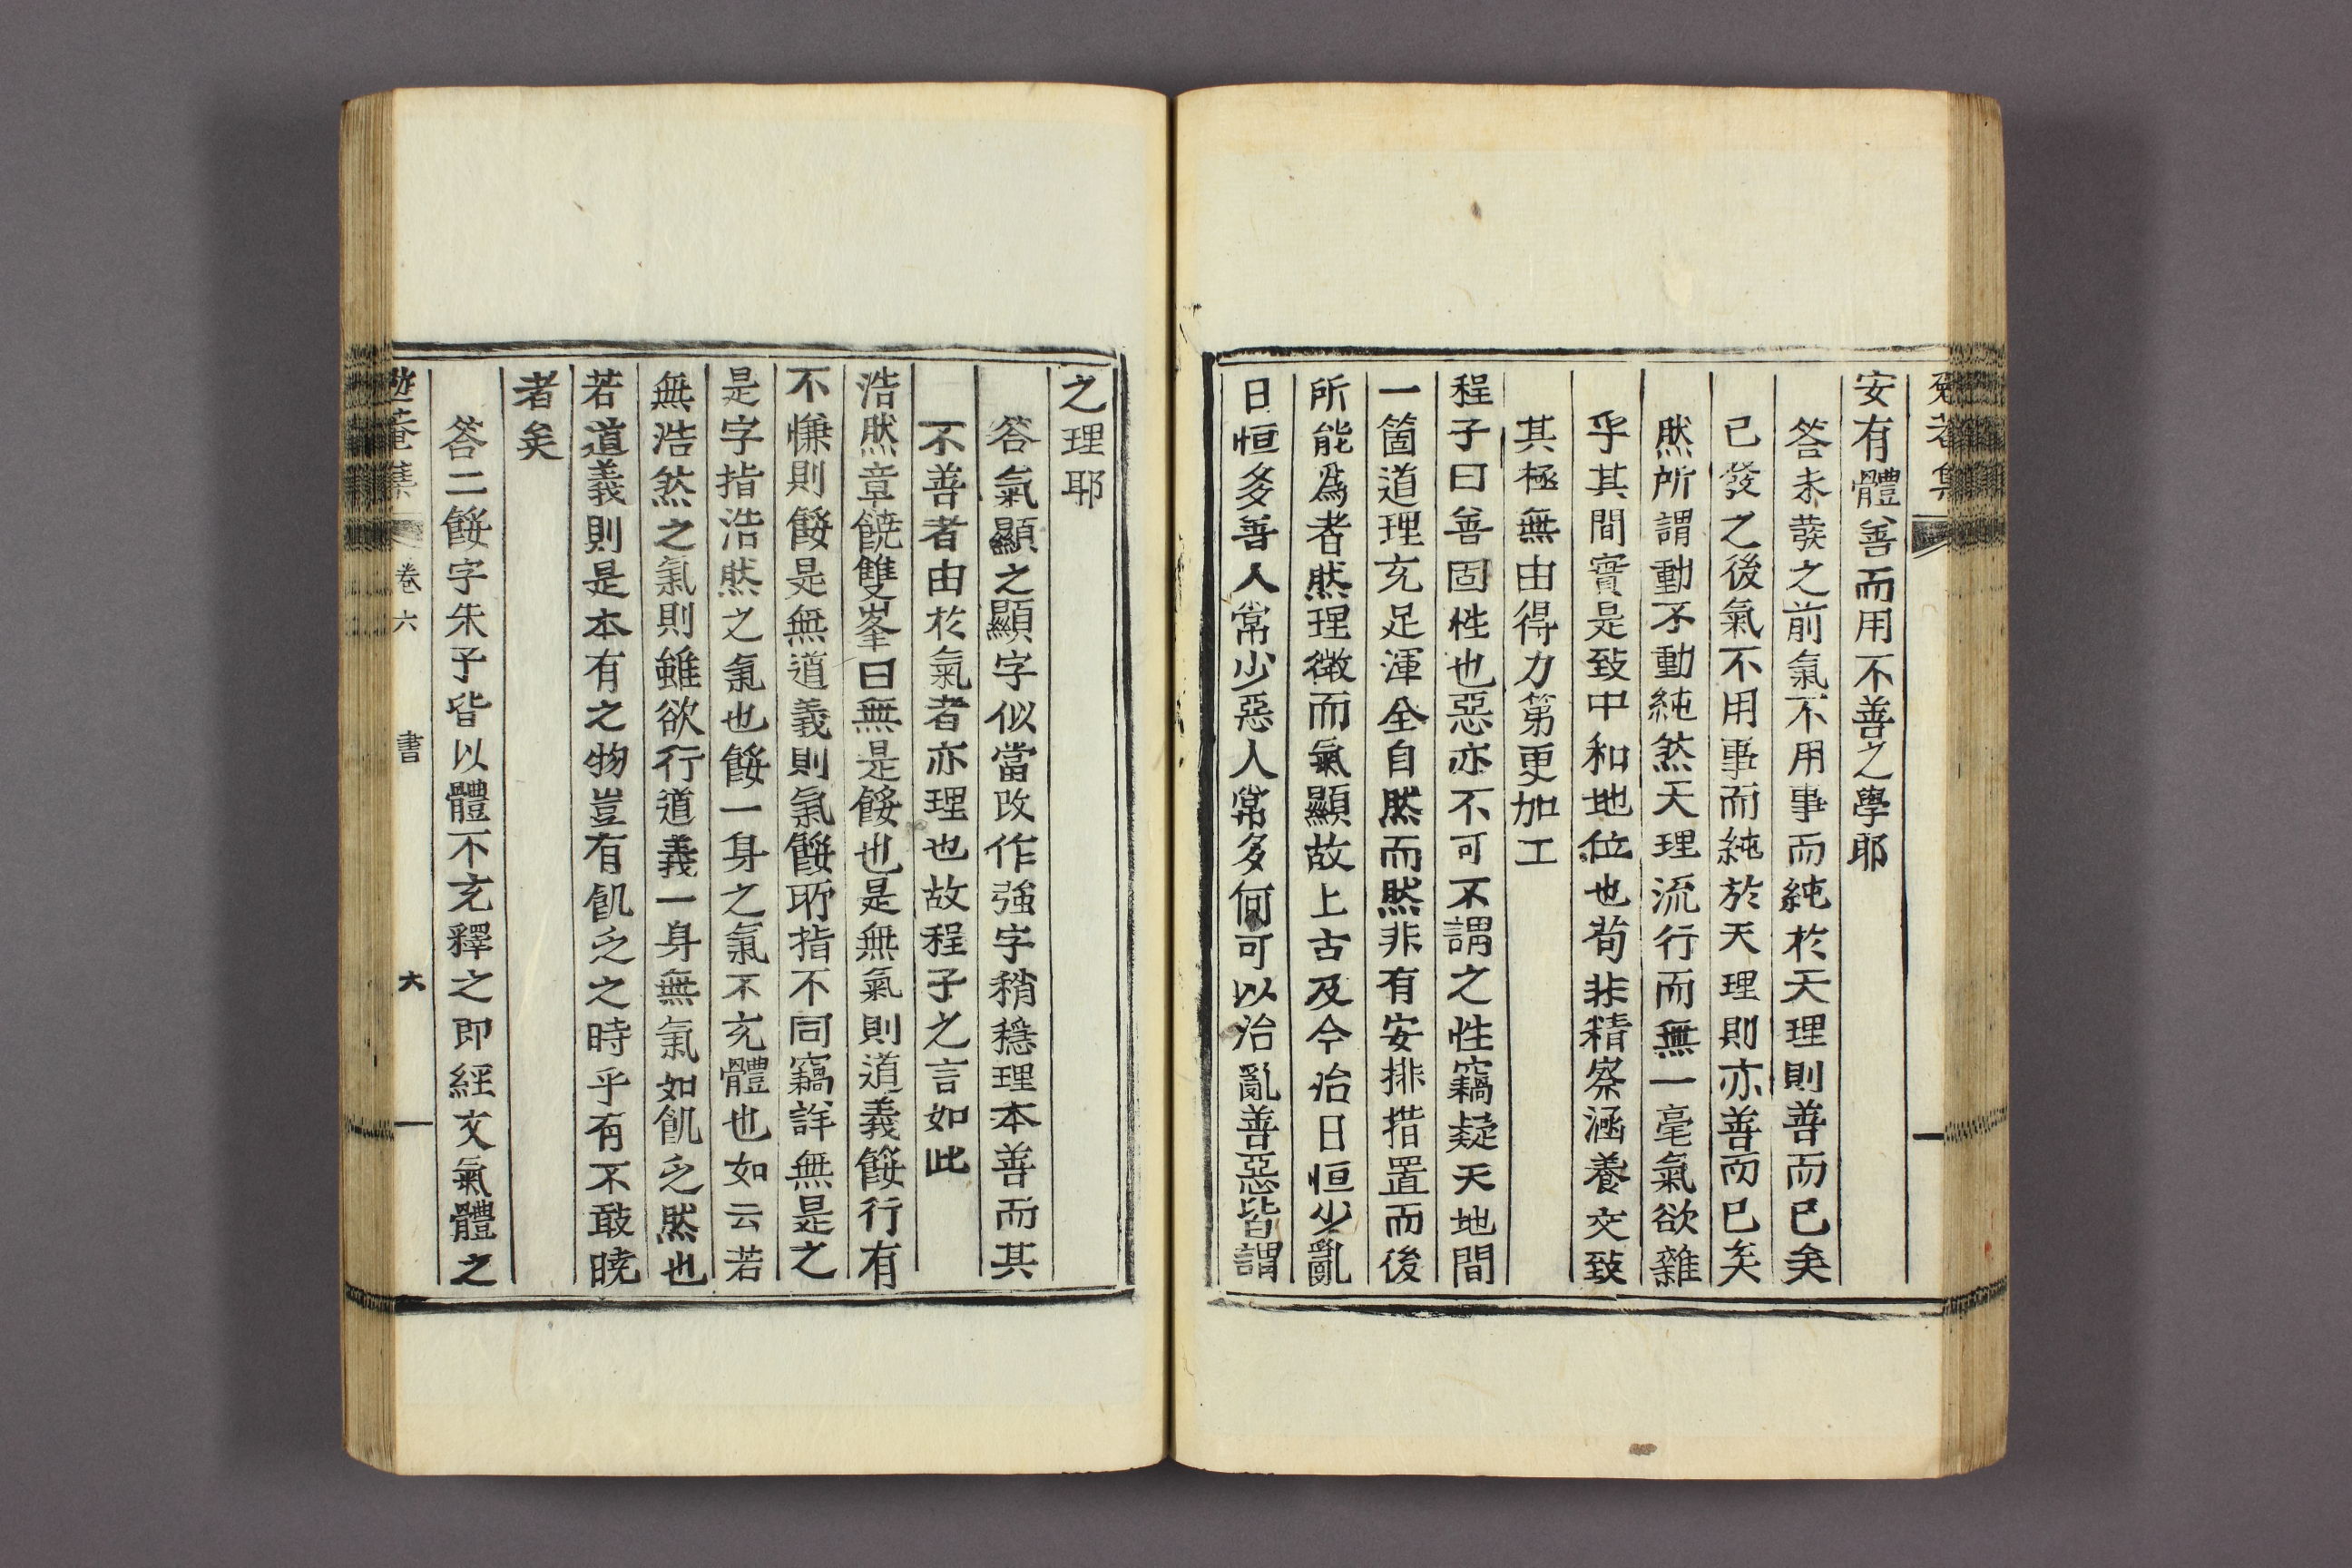 安有體善而用不善之學耶
答未發之前氣不用事而純於天理則善而已矣
已發之後氣不用事而純於天理則亦善而已矣
然所謂動不動純然天理流行而無一毫氣欲雜
乎其間實是致中和地位也苟非精察涵養交致
其極無由得力第更加工
程子曰善固性也惡亦不可不謂之性竊疑天地間
一箇道理充足渾全自然而然非有安排措置而後
所能爲者然理微而氣顯故上古及今治日恒少亂
日恒多善人常少惡人常多何可以治亂善惡皆謂
之理耶
答氣顯之顯字似當改作強字稍穩理本善而其
不善者由於氣者亦理也故程子之言如此
浩然章饒雙峯曰無是餒也是無氣則道義餒行有
不慊則餒是無道義則氣餒所指不同竊詳無是之
是字指浩然之氣也餒一身之氣不充體也如云若
無浩然之氣則雖欲行道義一身無氣如飢乏然也
若道義則是本有之物豈有飢乏之時乎有不敢曉
者矣
答二餒字朱子皆以體不充釋之即經文氣體之
卷六
書
六